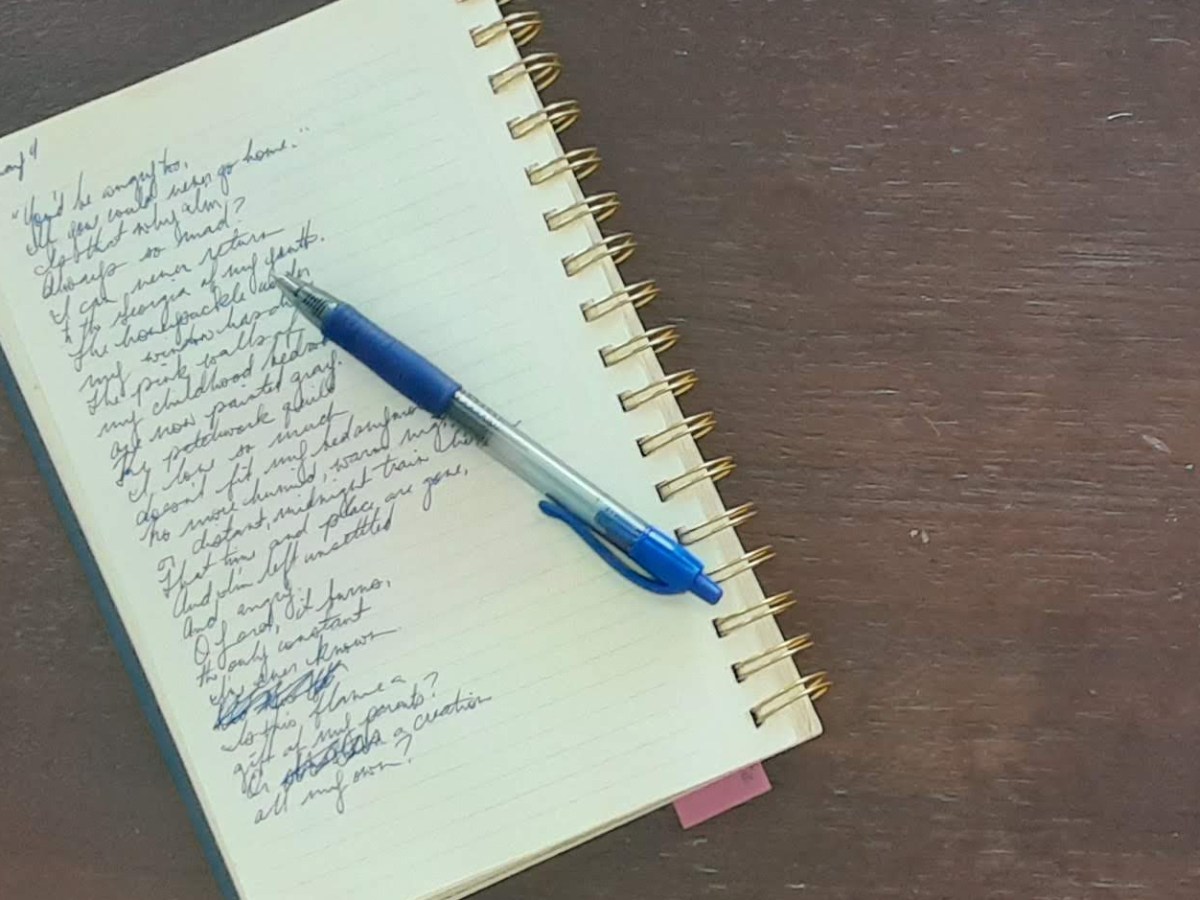 "You'd be angry too,
If you could never go home."
Is that why I'm
Always so mad?
I can never return
to the Georgia of my youth.
The honeysuckle under
my window has
The pink walls of
my childhood
are now painted gray.
The patchwork quilt
I love so much
doesn't fit my bed anymore
No more humid, warm
Or distant, midnight train
That time and place are gone,
And I'm left unsettled
And angry.
O Lord, it burns,
the only constant
I've ever known.
Is this flame a
gift of my parents?
Or a creation
all my own?